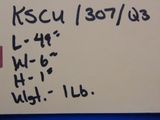 KSCU/307/Q3
L- 49"
W- 6"
H- 1"
Wgt.- 1 Lb.